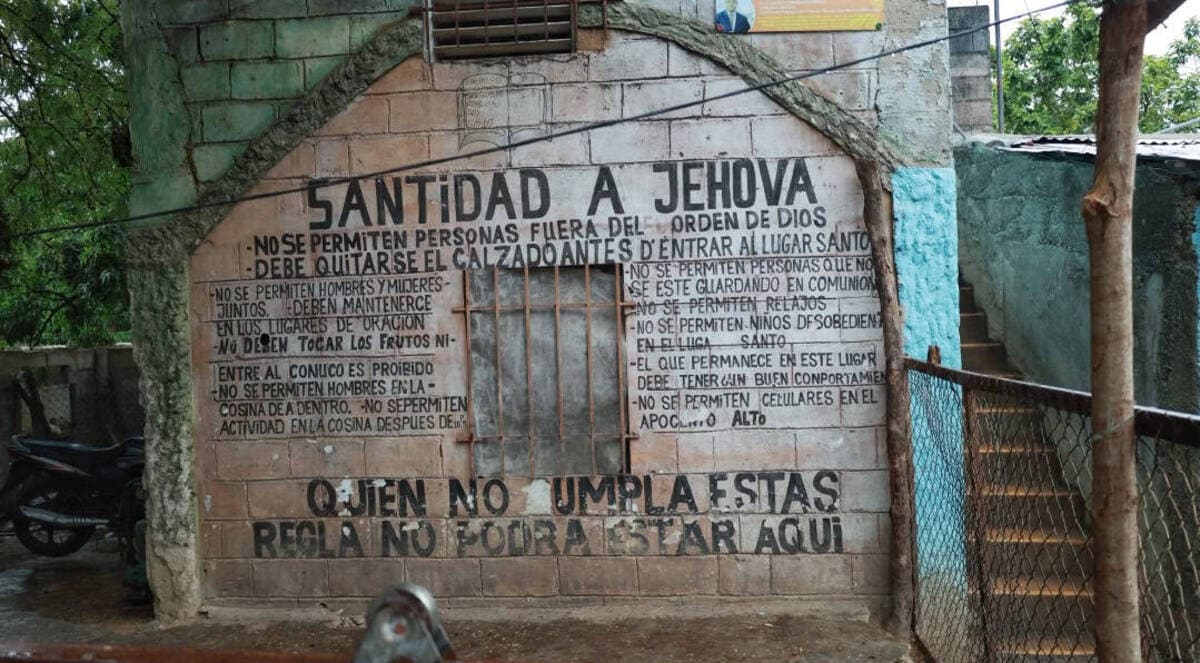 SANTIDAD A JEHOVA
-NO SE PERMITEN PERSONAS FUERA DEL ORDEN DE DIOS
-DEBE QUITARSE EL CALZADO ANTES D'ENTRAR AL LUGAR SANTO
-NO SE PERMITEN HOMBRES Y MUJERES-
JUNTOS. -DEBEN MANTENERCE
EN LOS LUGARES DE ORACION
-NO DEBEN TOCAR LOS FRUTOS NI-
ENTRE AL CONUCO ES PROIBIDO
-NO SE PERMITEN HOMBRES EN LA-
COSINA DE A DENTRO. -NO SE PERMITEN
ACTIVIDAD EN LA COSINA DESPUES DE
-NO SE PERMITEN PERSONAS QUE NO
SE ESTE GUARDANDO EN COMUNION
-NO SE PERMITEN RELAJOS
-NO SE PERMITEN NIÑOS DESOBEDIENT
EN EL LUGA SANTO
-EL QUE PERMANECE EN ESTE LUGAR
DEBE TENER GUN BUEN COMPORTAMIEN
-NO SE PERMITEN CELULARES EN EL
APOCENTO ALTO
QUIEN NO CUMPLA ESTAS
REGLA NO PODRA ESTAR AQUI